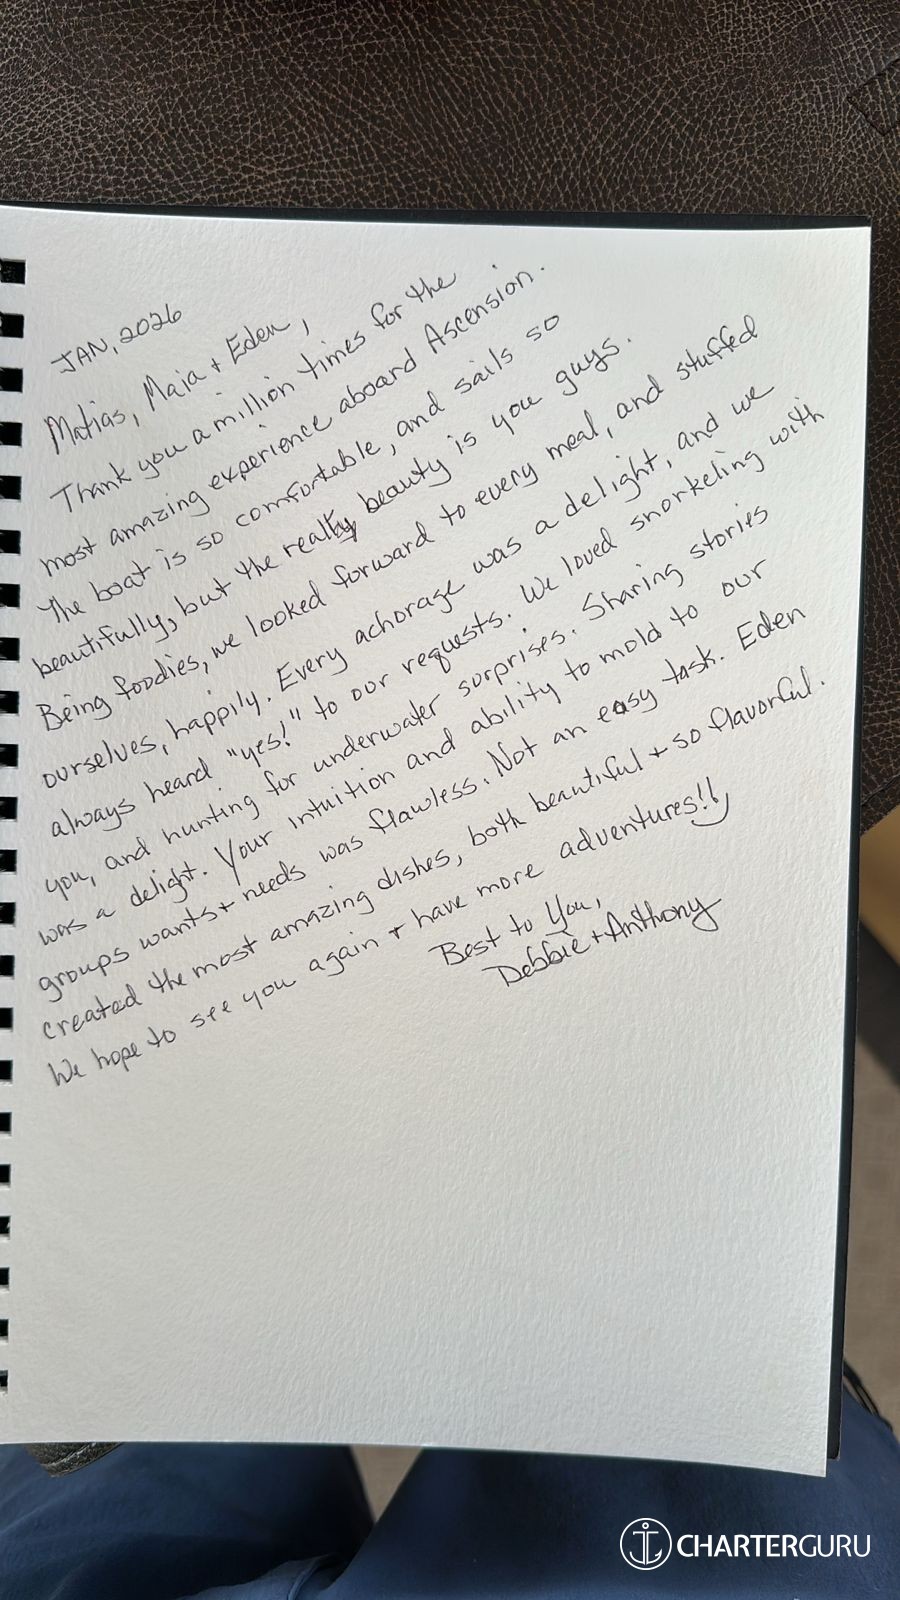 JAN, 2026
Matias, Maia + Eden,
Thank you a million times for the
most amazing experience aboard Ascension.
The boat is so comfortable, and sails so
beautifully, but the real beauty is you guys.
Being foodies, we looked forward to every meal, and stuffed
ourselves, happily. Every achorage was a delight, and we
always heard "yes!" to our requests. We loved snorkeling with
you, and hunting for underwater surprises. Sharing stories
was a delight. Your intuition and ability to mold to our
groups wants + needs was flawless. Not an easy task. Eden
created the most amazing dishes, both beautiful + so flavorful.
We hope to see you again + have more adventures!!
Best to You,
Debbie + Anthony
CHARTERGURU